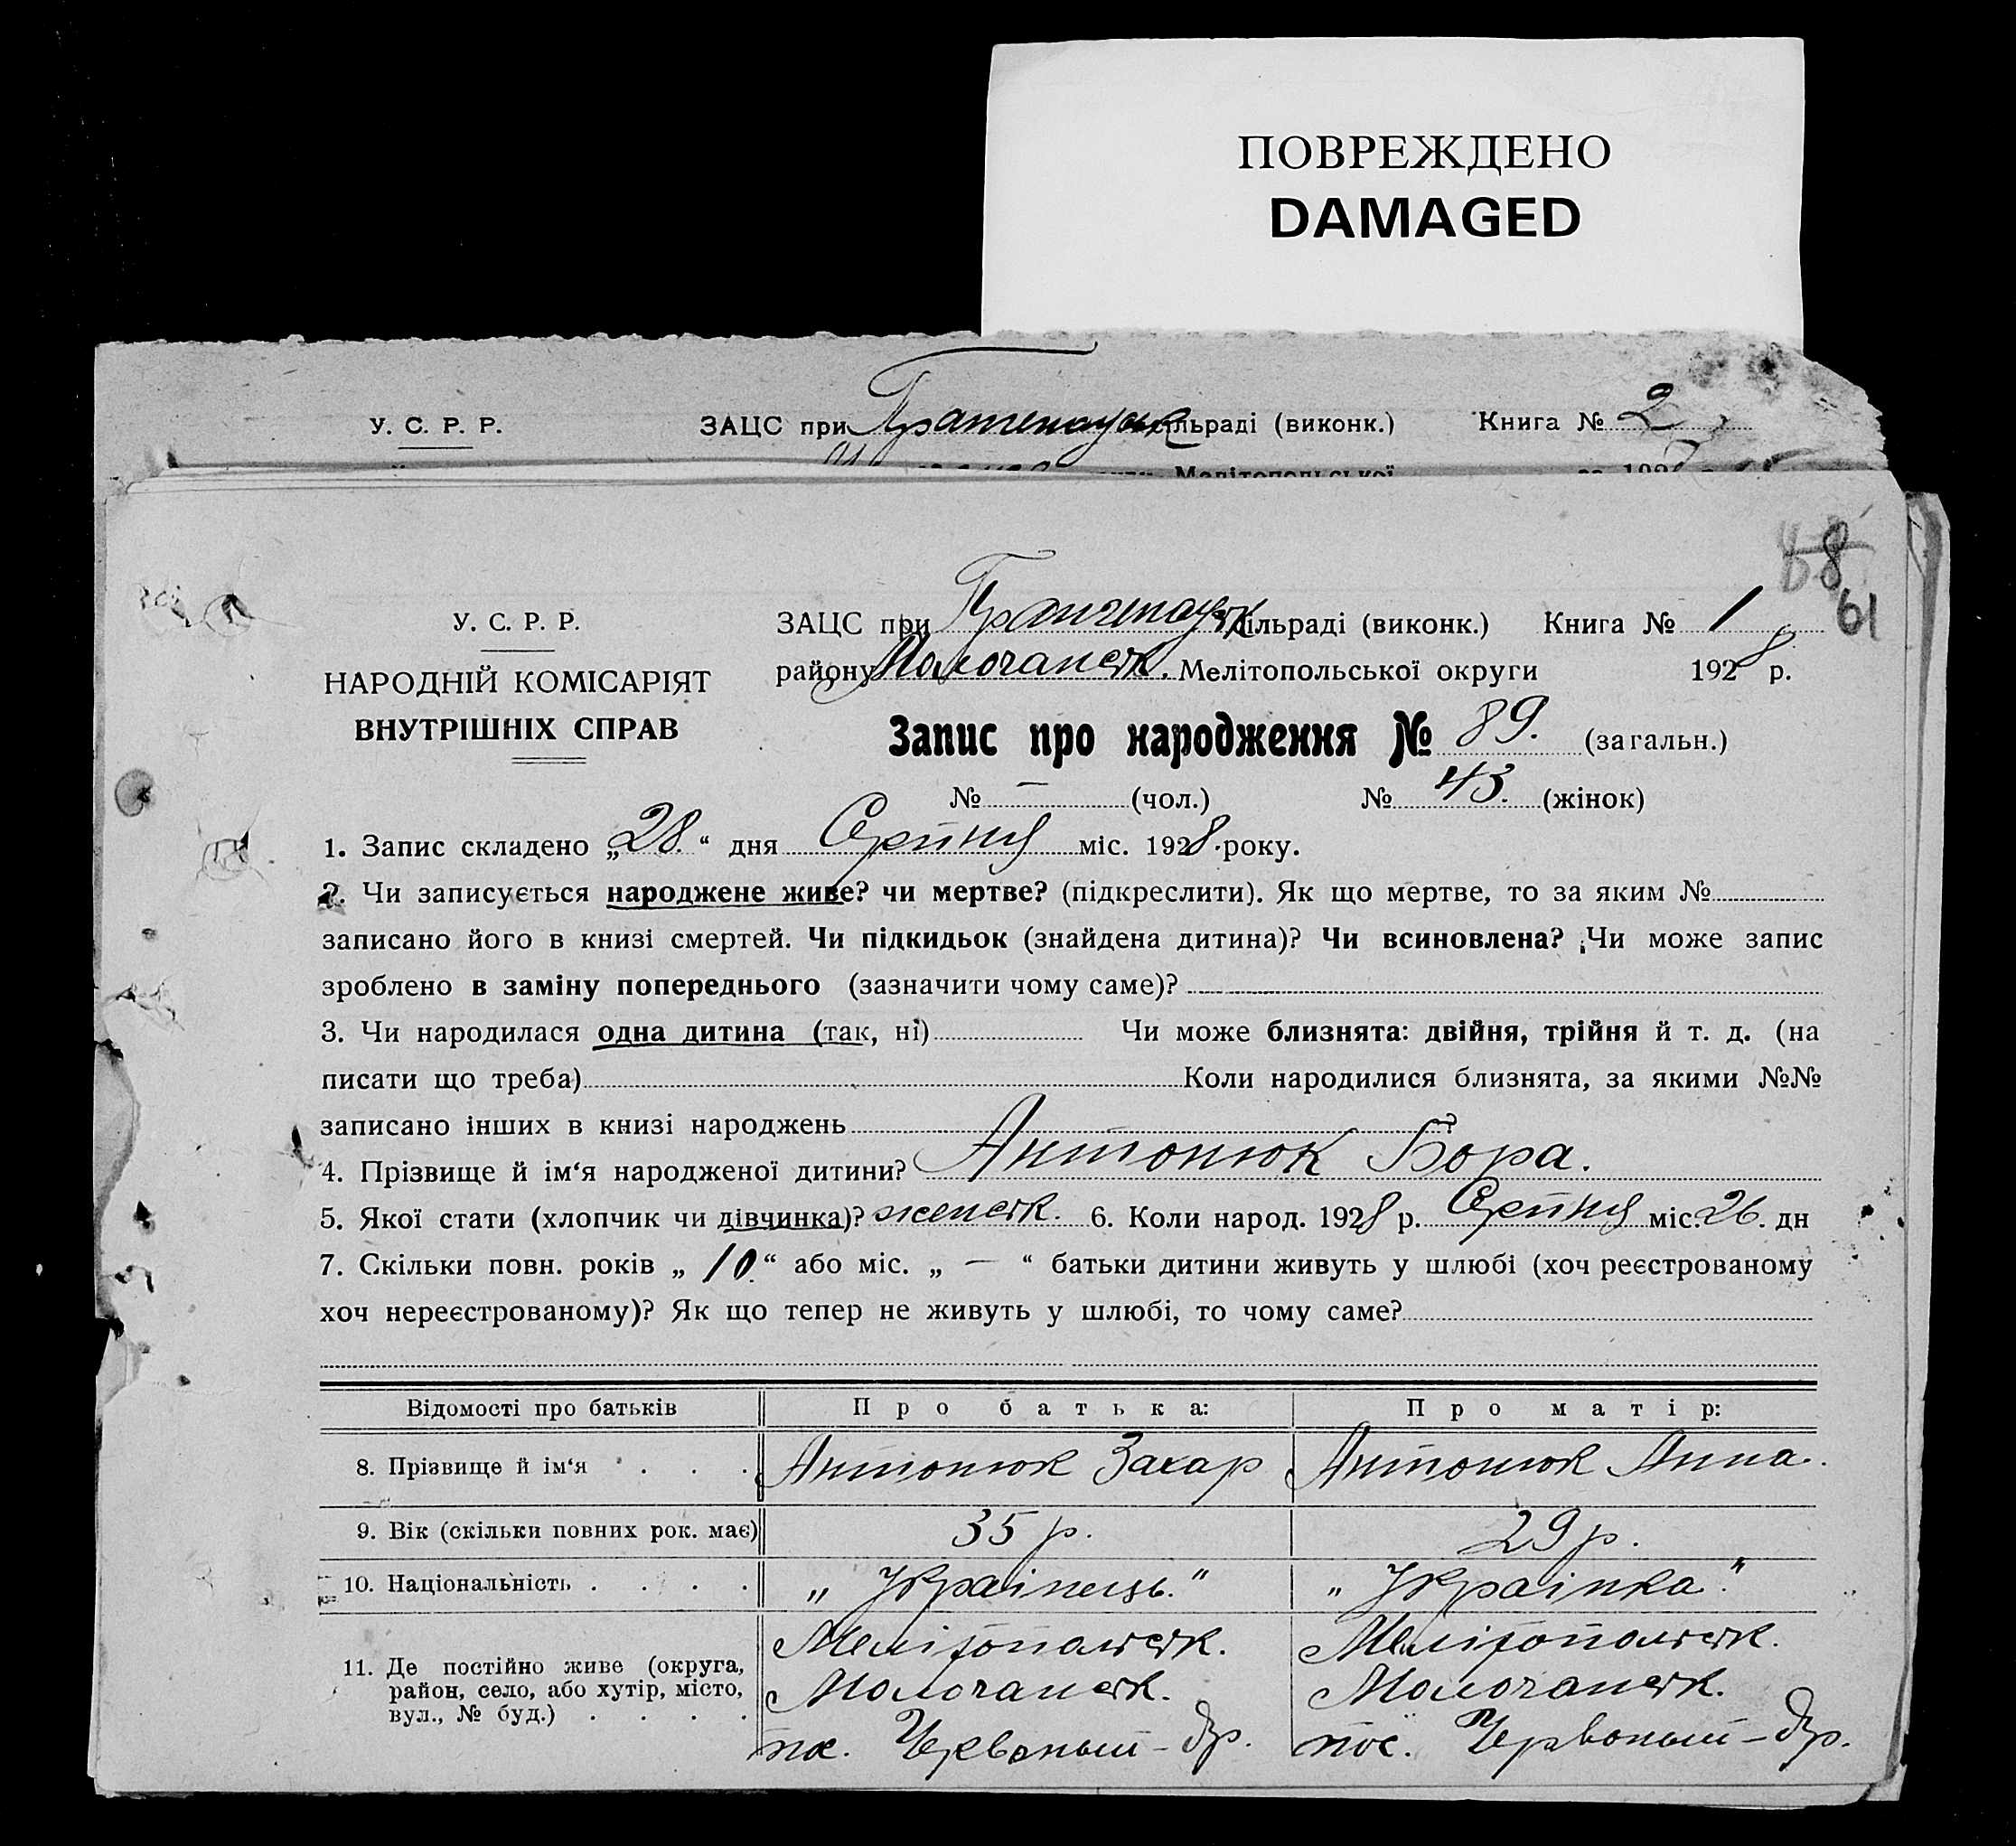 ПОВРЕЖДЕНО
DAMAGED
У. С. Р. Р. ЗАЦС при сільраді (виконк.) Книга № 2
Мелітопольської
88
61
У. С. Р. Р.
НАРОДНІЙ КОМІСАРІЯТ
ВНУТРІШНІХ СПРАВ
ЗАЦС при сільраді (виконк.) Книга № 1
району Молочанськ. Мелітопольської округи 1928 р.
Запис про народження № 89. (загальн.)
№ — (чол.) № 43. (жінок)
1. Запис складено „28.“ дня Серпня міс. 1928 року.
2. Чи записується народжене живе? чи мертве? (підкреслити). Як що мертве, то за яким №
записано його в книзі смертей. Чи підкидьок (знайдена дитина)? Чи всиновлена? Чи може запис
зроблено в заміну попереднього (зазначити чому саме)?
3. Чи народилася одна дитина (так, ні) Чи може близнята: двійня, трійня й т. д. (на
писати що треба) Коли народилися близнята, за якими №№
записано інших в книзі народжень ?
4. Прізвище й ім‘я народженої дитини? Антонюк Бора.
5. Якої стати (хлопчик чи дівчинка)? женськ. 6. Коли народ. 1928 р. Серпня міс. 26. дн
7. Скільки повн. років „10.“ або міс. „ — “ батьки дитини живуть у шлюбі (хоч реєстрованому
хоч нереєстрованому)? Як що тепер не живуть у шлюбі, то чому саме?
Відомості про батьків Про батька: Про матір:
8. Прізвище й ім‘я . . . . Антонюк Захар Антонюк Анна.
9. Вік (скільки повних рок. має) 35 р. 29 р.
10. Національність . . . . „Українець.“ „Українка“.
11. Де постійно живе (округа, район, село, або хутір, місто, вул., № буд.) . . . .
Мелітопольськ. Мелітопольськ.
Молочанськ. Молочанськ.
пос. Червоный-Яр. пос. Червоный-Яр.